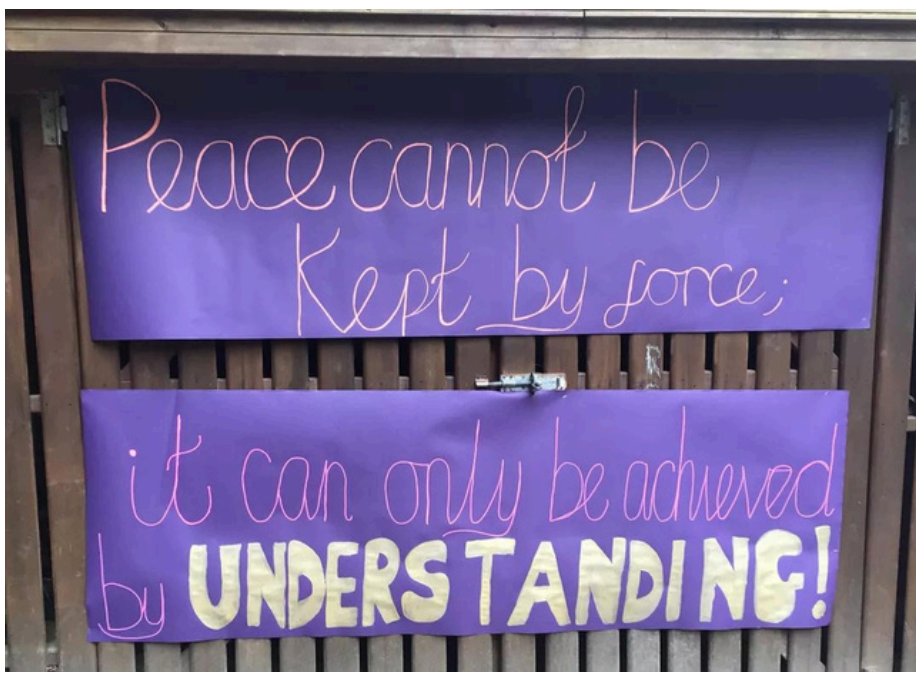 Peace cannot be
Kept by force;
it can only be achieved
by UNDERSTANDING!